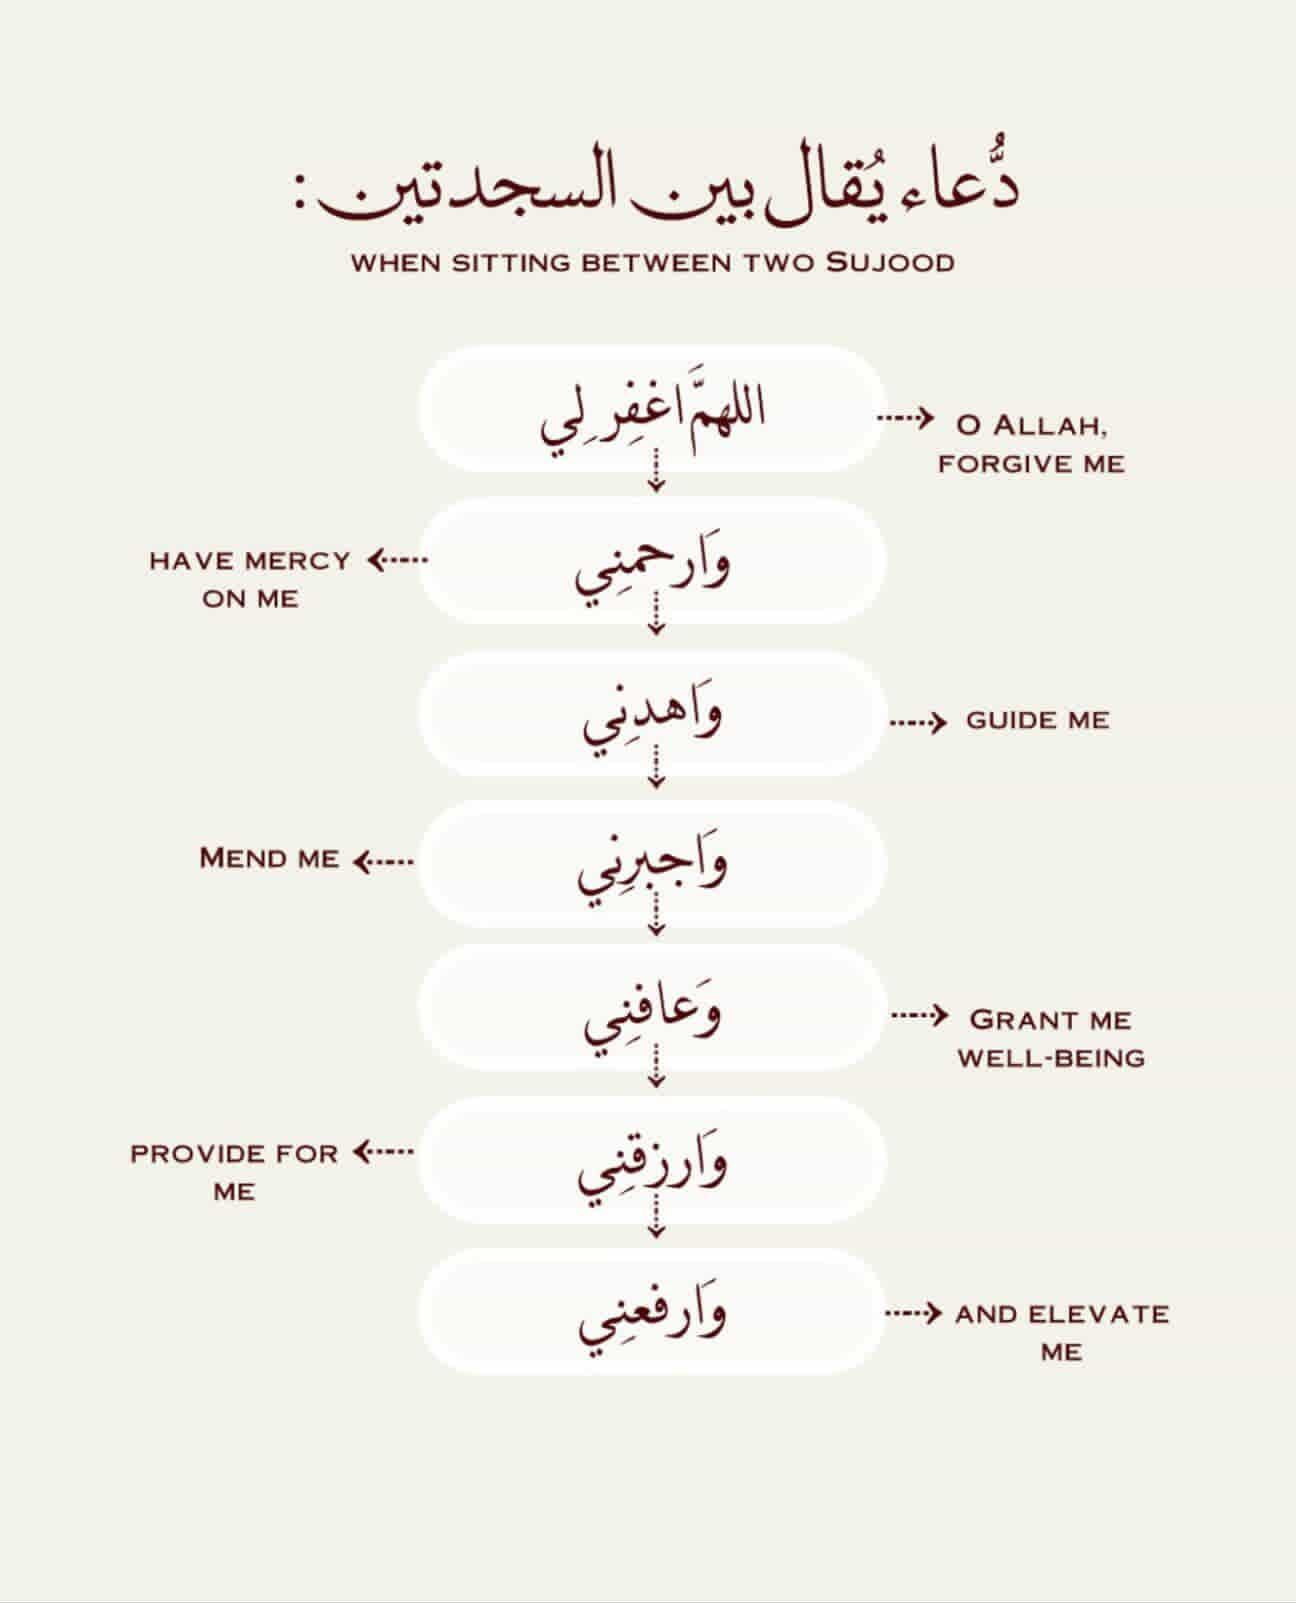 دُّعاء يُقال بين السجدتين :
WHEN SITTING BETWEEN TWO SUJOOD
اللهمَّ اغفِر لِي
O ALLAH,
FORGIVE ME
وَارحمنِي
HAVE MERCY
ON ME
وَاهدِنِي
GUIDE ME
وَاجبرنِي
MEND ME
وَعافنِي
GRANT ME
WELL-BEING
وَارزقنِي
PROVIDE FOR
ME
وَارفعنِي
AND ELEVATE
ME